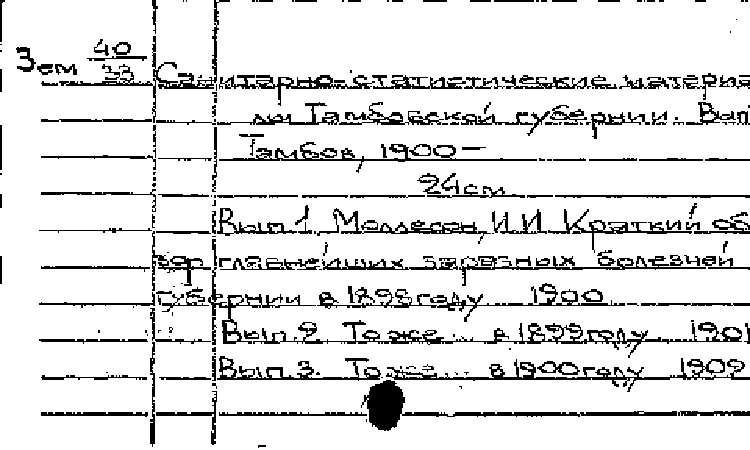 Зем 40/33 Санитарно-статистические материа
лы Тамбовской губернии. Вып
Тамбов, 1900-
24см
Вып.1. Моллесон, И.И. Краткий об
зор главнейших заразных болезней
губернии в 1898 году 1900
Вып.2. То же... в 1899 году 1901
Вып.3. То же... в 1900 году 1902